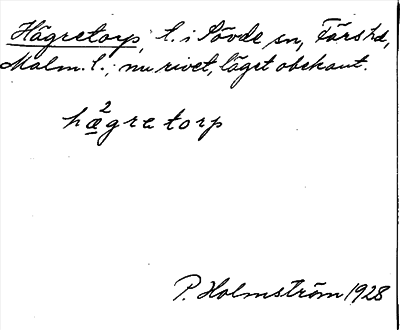 Hägretorp, t. i Sövde sn, Färs hd,
Malm. l.; nu rivet, läget obekant.
hæ²gretorp
P. Holmström 1928